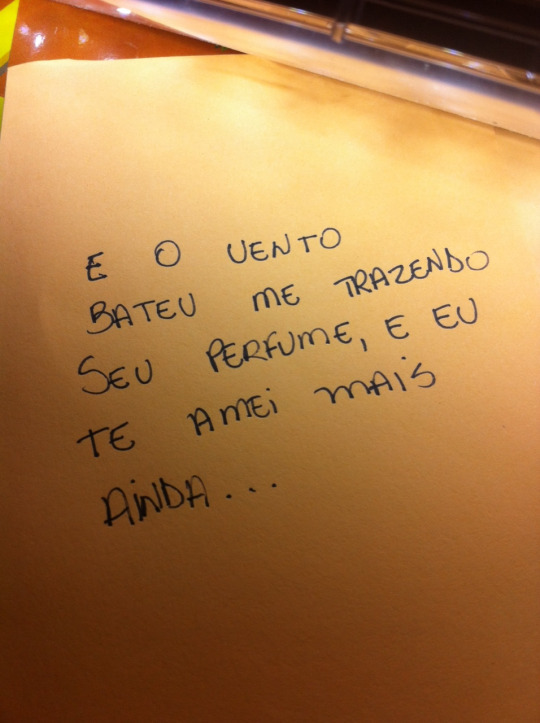 E O VENTO
BATEU ME TRAZENDO
SEU PERFUME, E EU
TE AMEI MAIS
AINDA...